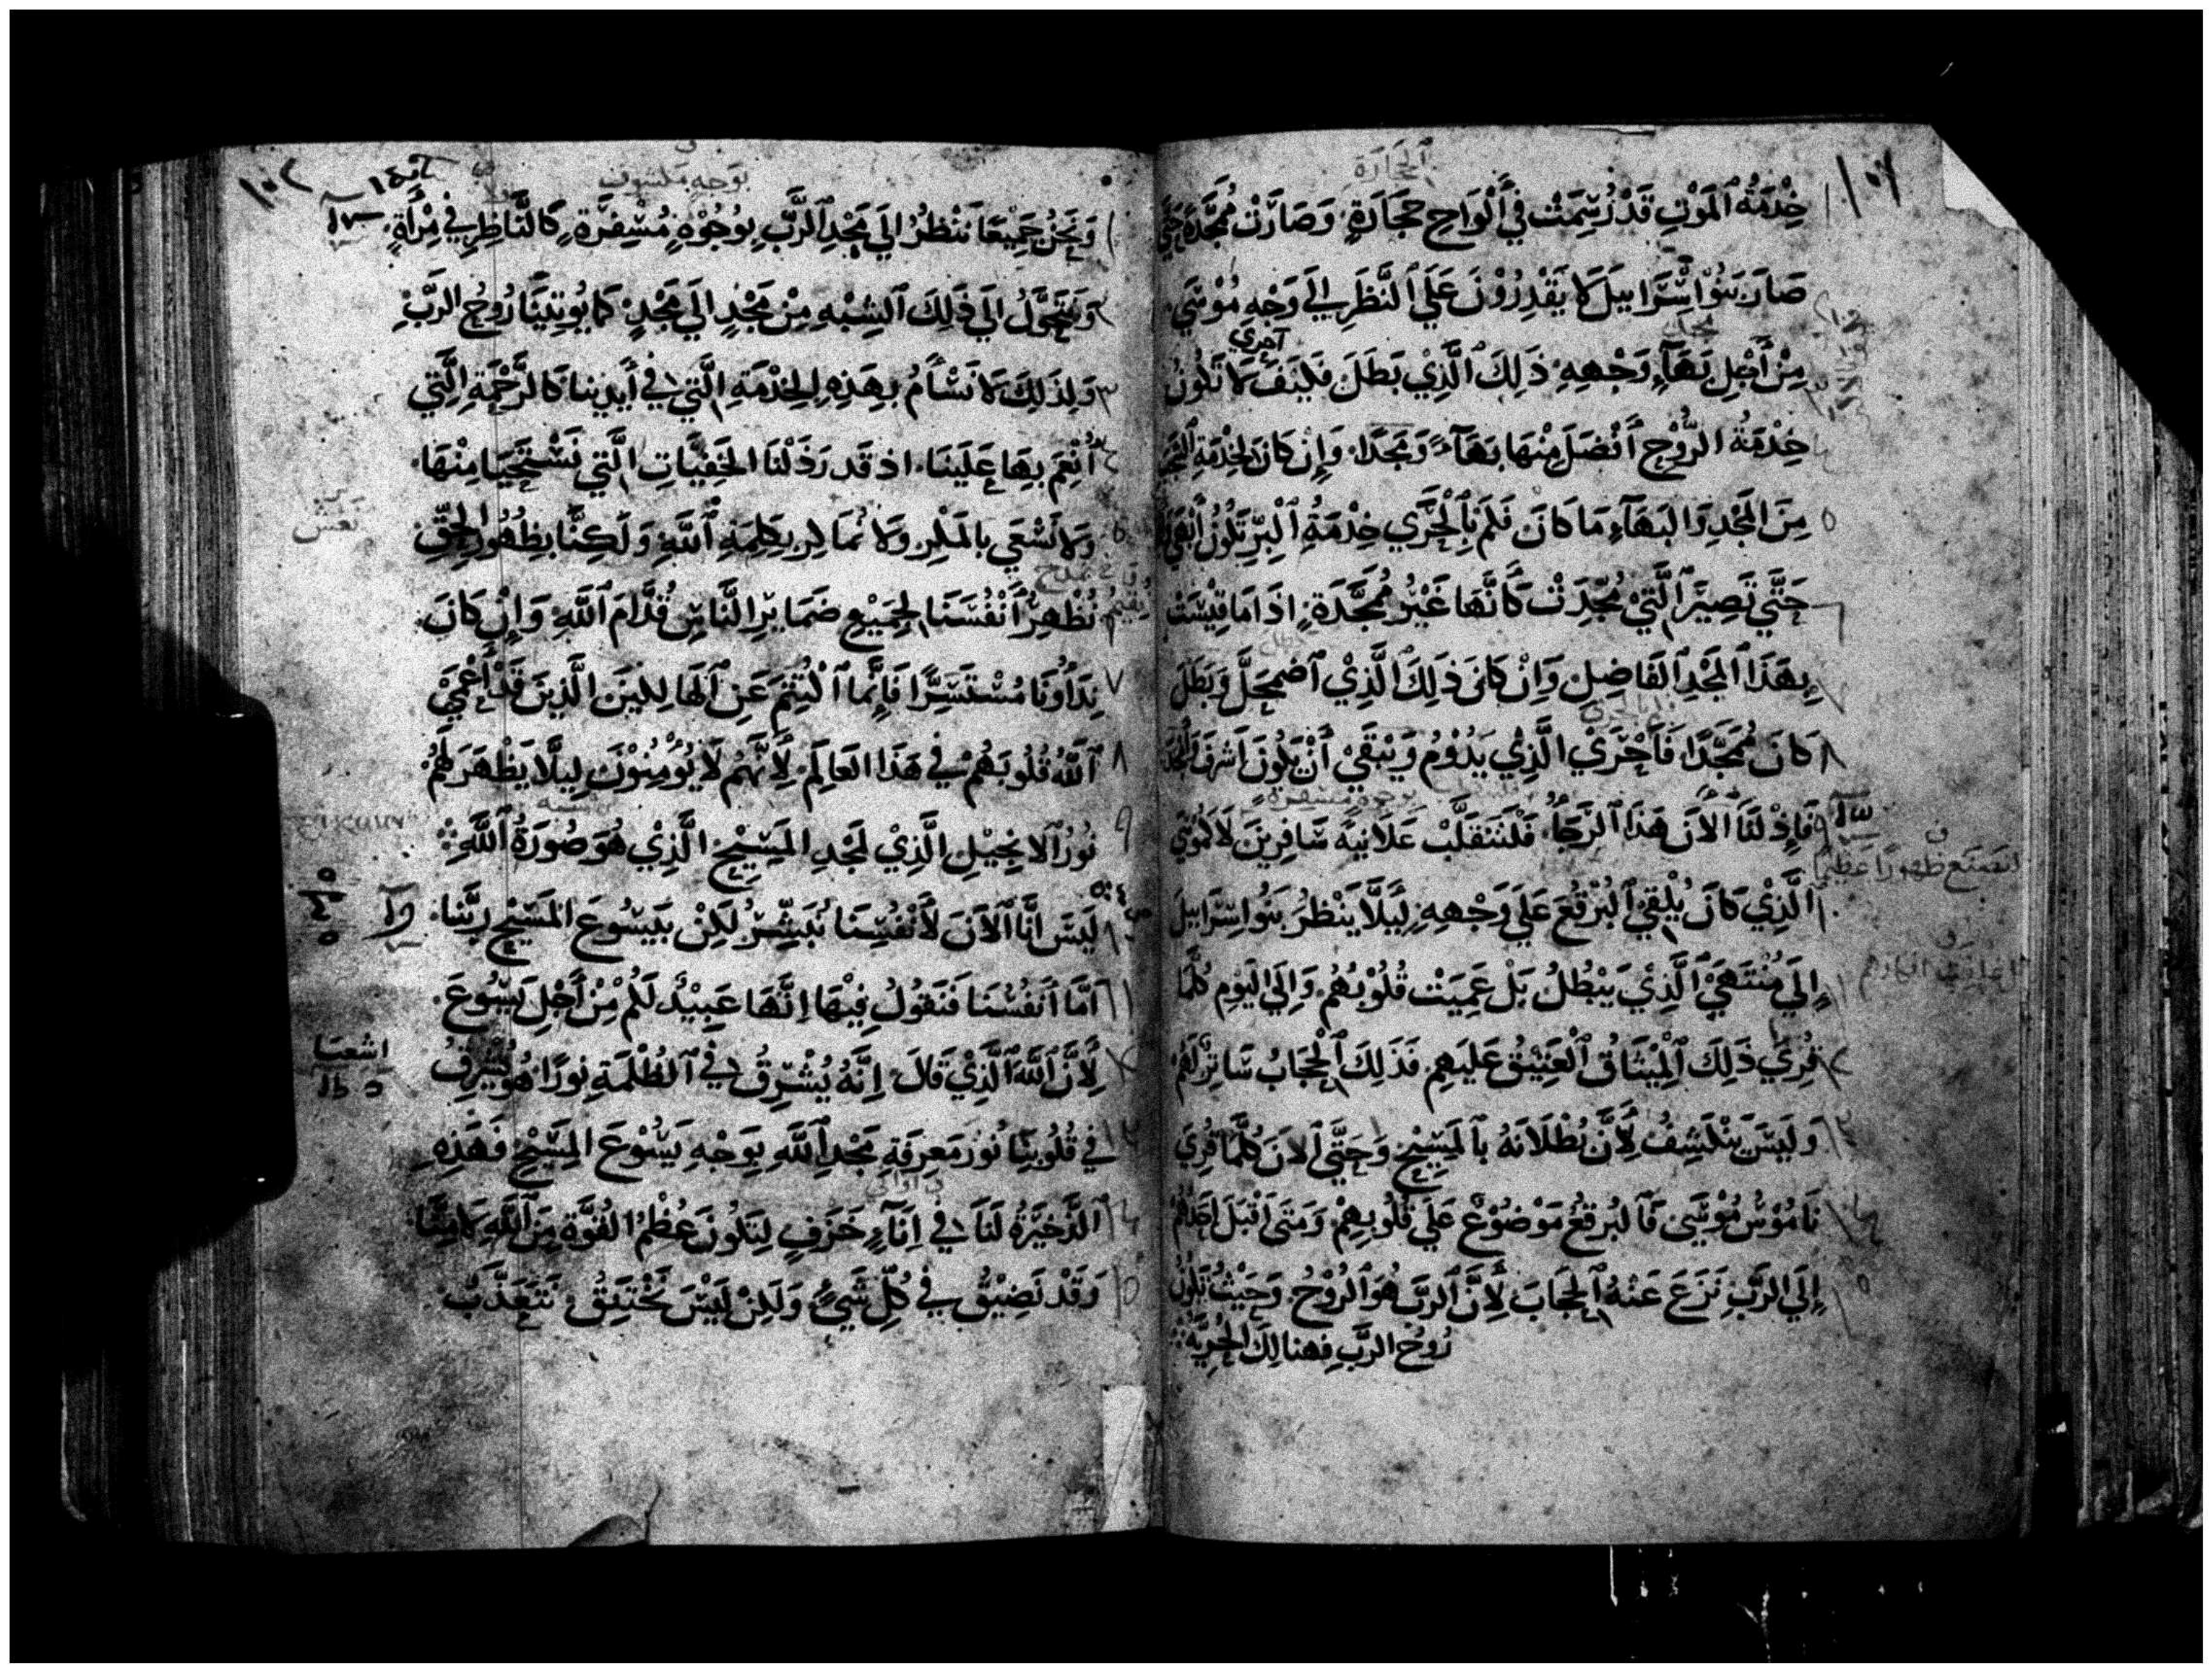 الحجارة
خِدْمَةُ ٱلمَوْتِ قَدْ رُسِمَتْ في أَلْوَاحِ حجَارَةٍ وَصَارَتْ مُمَجَّدَةً حَتَّي
صَارَ بَنُوا إِسْرَاييلَ لا يَقْدِرُوْنَ عَلَي ٱلنَّظَرِ إلَي وَجْهِ مُوْسَي
أحري
مِنْ أَجْلِ بَهَآءِ وَجْهِهِ ذَلِكَ ٱلَّذِيْ بَطَلَ فَكَيْفَ لا تَكُونُ
خِدْمَةُ الرُّوْحِ أَفْضَلَ مِنْهَا بَهَآءً وَمَجْدًا وَإِن كَانَ لِخِدْمَةِ
مِنَ المَجْدِ وَالبَهَآءِ مَا كَانَ فَكَمْ بِٱلْحَرَي خِدْمَةُ ٱلْبِرِّ تَكُونُ
حَتَّي تَصِيرَ ٱلَّتِيْ مُجِّدَتْ كَأَنَّهَا غَيْرُ مُمَجَّدَةٍ اذَا مَا قِيْسَتْ
بِهَذَا ٱلمَجْدِ ٱلفَاضِلِ وَاِنْ كَانَ ذَلِكَ ٱلَّذِيْ ٱضمحَلَّ وَبَطَلَ
كَانَ مُمَجَّدًا فَأَحْرَيْ الَّذِيْ يَدُوْمُ وَيَبْقَيْ أَنْ يَكُونَ اَشرَفَ
فَإِذْ لَنَا ٱلأَنَ هَذَا ٱلرَّجَاءُ فَلْنَتَقَلَّبْ عَلَانِيَةً سَافِرِيْنَ لَا كَمُوْسَي
ٱلَّذِيْ كَانَ يُلْقِي ٱلبُرْقُعَ عَلَي وَجْهِهِ لِيَلَّا يَنْظُرَ بَنُوا سِرَاييلَ
إِلَي مُنْتَهَيْ ٱلَّذِيْ يَبْطُلُ بَلْ عَمِيَتْ قُلُوْبُهُمْ وَإِلَي اليَومِ كُلَّمَا
قُرِيَ ذَلِكَ ٱلْمِيْثَاقُ ٱلْعَتِيْقُ عَلَيهِم فَذَلِكَ ٱلْحِجَابُ سَاتِرٌ لَهُمْ
وَلَيْسَ يَنْكَشِفُ لِأَنَّ بُطْلَانَهُ بِٱلمَسِيْحِ وَحَتَّي ٱلانَ كُلَّمَا قُرِيَ
نَامُوْسُ مُوْسَي فَٱلبُرقُعُ مَوْضُوْعٌ عَلَي قُلُوبِهِمْ وَمَتَي اَقْبَلَ اَحَدُهُمْ
إِلَي الرَّبِّ نَزَعَ عَنْهُ ٱلحِجَابَ لِأَنَّ ٱلرَّبَّ هُوَ ٱلرُّوْحُ وَحَيْثُ تَكُونُ
رُوحُ الرَّبِّ فهنالِكَ الحُرِيَّةُ
بوَجهٍ مكشوف
وَنَحْنُ جَمِيْعًا نَنْظُرُ الَي مَجْدِ ٱلرَّبِّ بِوُجُوْهٍ مُسْفِرَةٍ كَالنَّاظِرِ فِي مِرْأَةٍ
وَنَتَحَوَّلُ الَي ذَلِكَ ٱلشِبْهِ مِنْ مَجْدٍ الَي مَجْدٍ كَمَا يُوتِيْنَا رُوحُ الرَّبِّ
وَلِذَلِكَ لا نَسْأَمُ بِهَذِهِ الخِدْمَةِ الَّتِي في أَيدِينا كَالرَّحْمَةِ الَّتِي
أُنْعِمَ بِهَا عَلَيْنَا اذ قد رَذَلْنَا الخَفِيَّاتِ الَّتِي نَسْتَحْيِيَا مِنْهَا
وَلا نَسْعَي بالمَكْرِ وَلا نُمَاكِر بِكَلِمَةِ ٱللَّهِ وَلَكِنَّا بِظُهُورِ الحَقِّ
نُظْهِرُ أَنْفُسَنَا لِجَمِيْعِ ضَمَايِرِ النَّاسِ قُدَّامَ ٱللَّهِ وَاِنْ كَانَ
نِدَآؤُنَا مُسْتَسِرًّا فَإِنَّمَا ٱكْتُتِمَ عَنِ ٱلهَالِكِيْنَ الَّذِينَ قَدْ أَعْمَيْ
ٱللَّهُ قُلُوبَهُمْ في هَذَا العَالَمِ لِأَنَّهُم لَا يُوْمِنُوْنَ لِيلَّا يَظْهَرَ لَهُمْ
نُورُ ٱلانجِيْلِ الَّذِيْ لمَجْدِ المَسِيْحِ الَّذِيْ هُوَ صُورَةُ ٱللَّهِ
لَيْسَ انَّا ٱلاَنَ لأَنْفُسِنَا نُبَشِّرُ لَكِنْ بيَسُوعَ المَسِيْحِ رَبِّنَا
اَمَّا اَنفُسُنَا فَنَقُولُ فِيْهَا اِنَّهَا عَبِيْدٌ لَكُمْ مِنْ أَجْلِ يَسُوعَ
لِأَنَّ ٱللَّهَ ٱلَّذِيْ قَالَ اِنَّهُ يُشْرِقُ في ٱلظُلْمَةِ نُورًا هُوَ يُشْرِقُ
اشعيا
في قُلُوبِنَا نُورَ مَعرِفَةِ مَجْدِ ٱللَّهِ بِوَجْهِ يَسُوْعَ المَسِيْحِ فَهَذِهِ
الذَّخِيْرَةُ لَنَا في اِنَآءٍ خَزَفٍ لِيَكُونَ عُظْمُ القُوَّةِ مِنَ ٱللَّهِ لا مِنَّا
وَقَدْ نَضِيْقُ في كُلِّ شَيْءٍ وَلَكِنْ لَيْسَ نَخْتَنِقُ نَتَعَذَّبُ